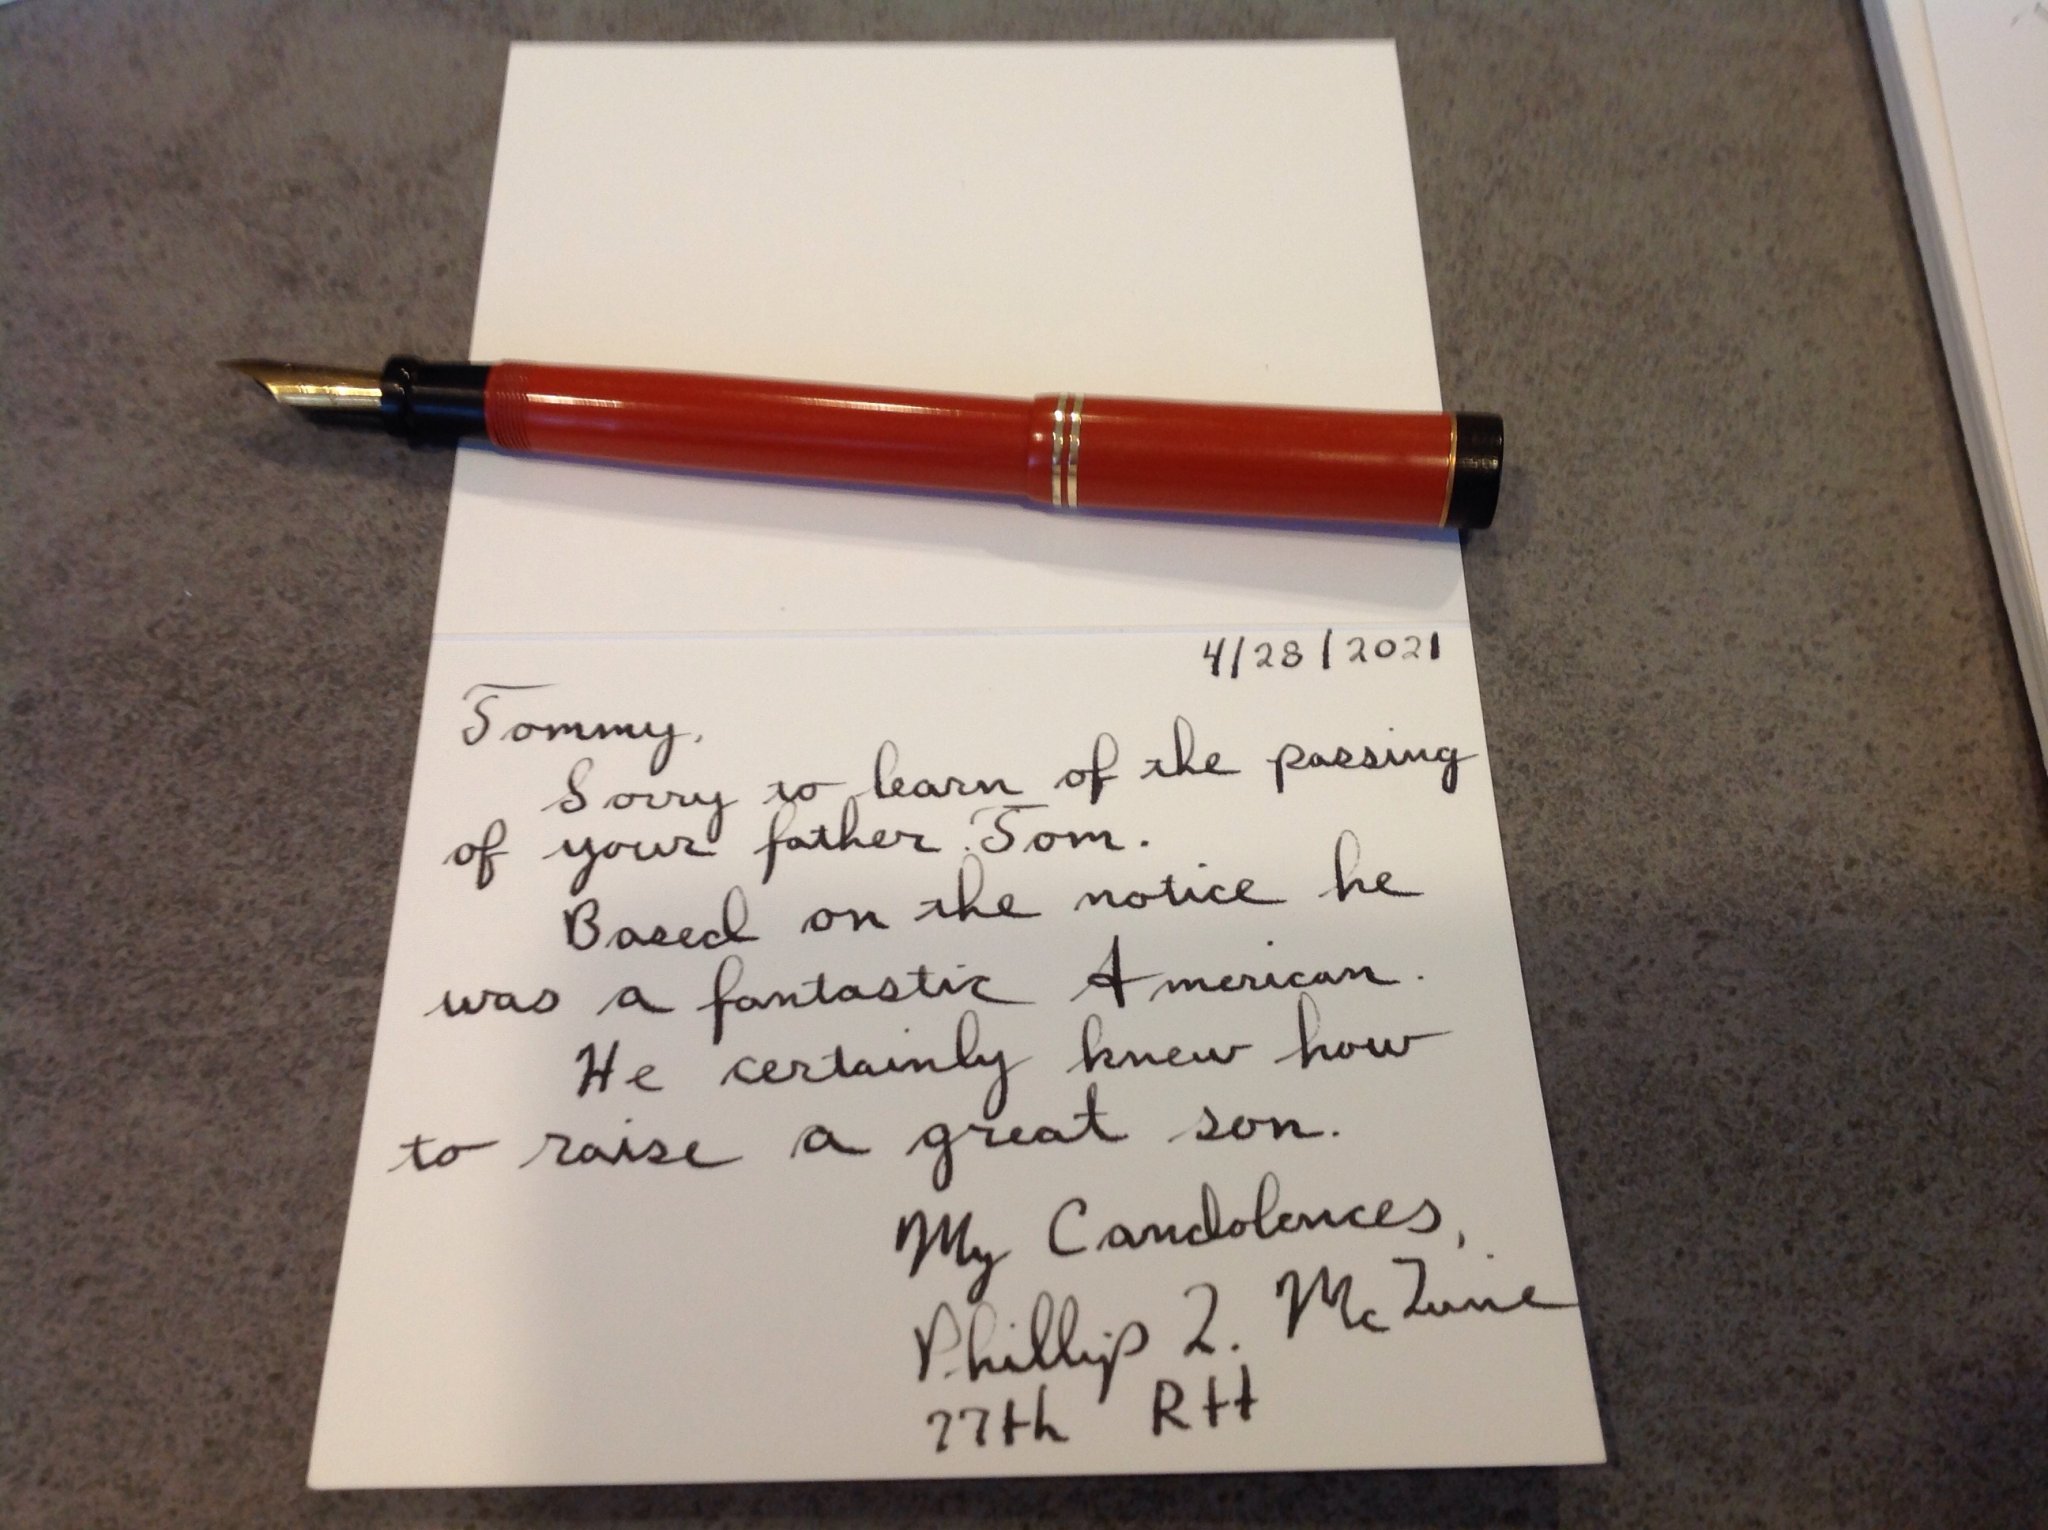 4/28/2021
Tommy,
Sorry to learn of the passing
of your father Tom.
Based on the notice he
was a fantastic American.
He certainly knew how
to raise a great son.
My Candolences,
Phillip
77th RH